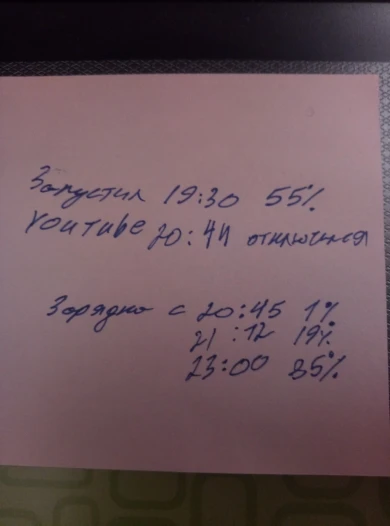 Запустил 19:30 55%
Youtube 20:44 отключился
Зарядка с 20:45 1%
21:12 19%
23:00 85%